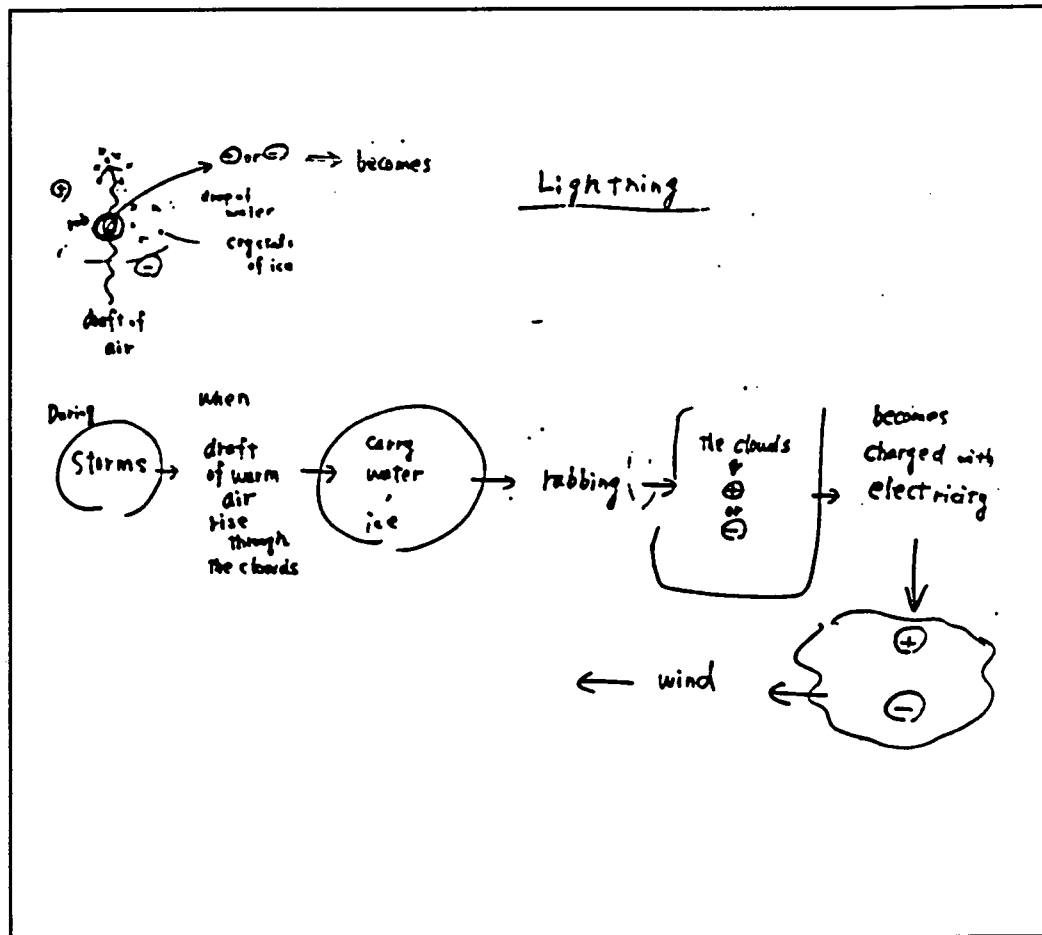 Lightning
⊕ or ⊖ ⇒ becomes
drop of
water
crystals
of ice
⊕
⊖
draft of
air
During
Storms →
when
draft
of warm
air
rise
through
the clouds
→ carry
water
,
ice
→ rubbing →
the clouds
⊕
or
⊖
→ becomes
charged with
electricity
⊕
⊖
← wind ←